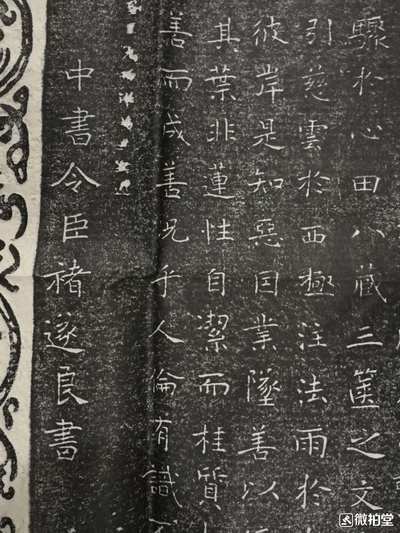 驟於心田八藏三篋之文
引慈雲於西極注法雨於
彼岸是知惡囙業墜善以
其葉非蓮性自潔而桂質
善而成善況乎人倫有識
中書令臣褚遂良書
微拍堂